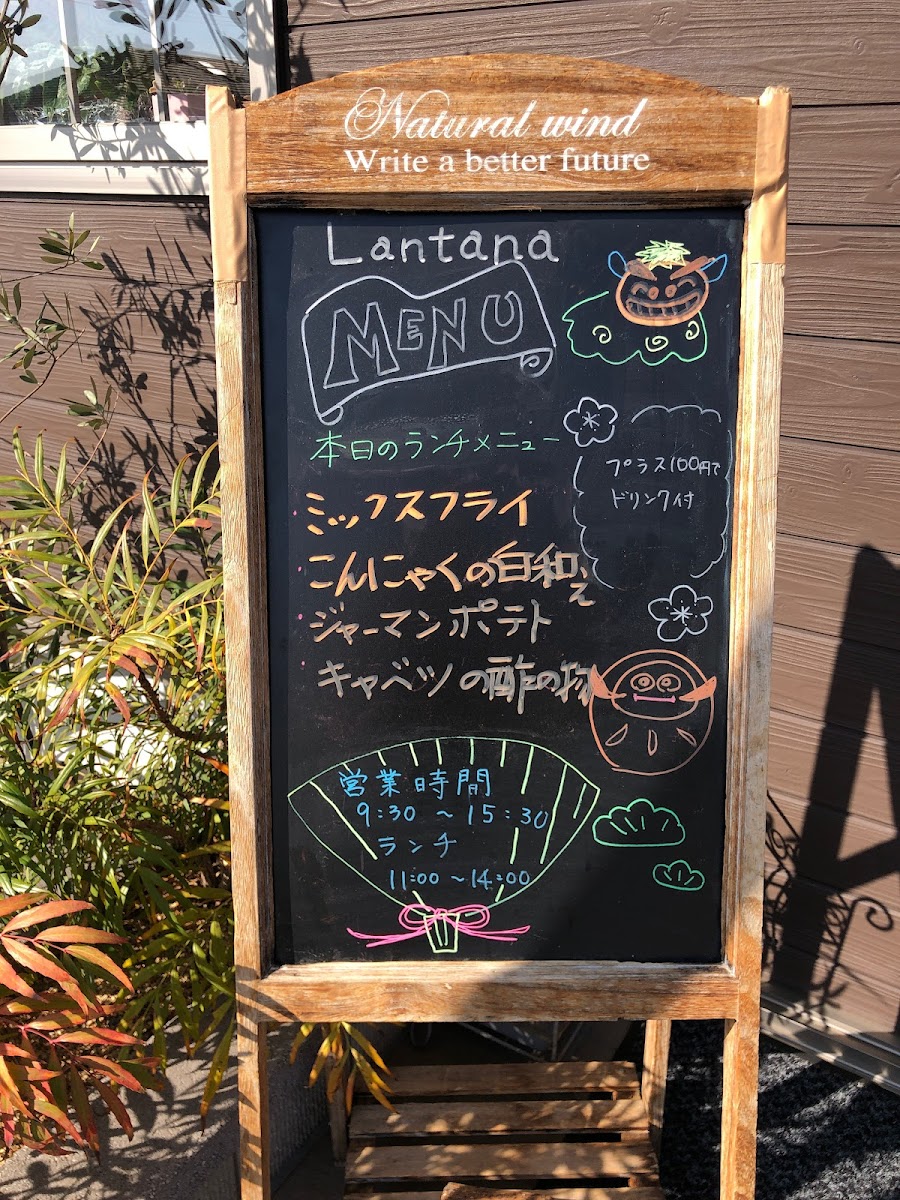 Natural wind
Write a better future
Lantana
MENU
本日のランチメニュー
プラス100円で
ドリンク付
ミックスフライ
こんにゃくの白和え
ジャーマンポテト
キャベツの酢の物
営業時間
9:30 ~ 15:30
ランチ
11:00 ~ 14:00